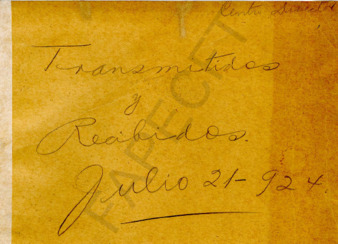 Transmitidos
y
Recibidos.
Julio 21-924.